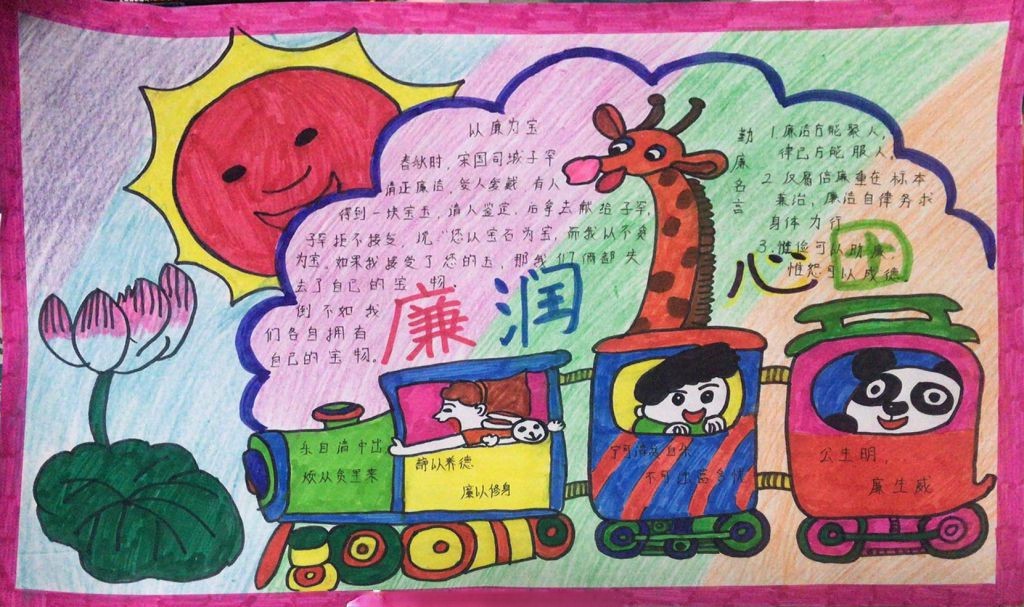 以廉为宝
春秋时，宋国司城子罕
清正廉洁，受人爱戴，有人
得到一块宝玉，请人鉴定，后拿去献给子罕，
子罕拒不接受，说：“您以宝石为宝，而我以不贪
为宝。如果我接受了您的玉，那我们俩都失
去了自己的宝物
倒不如我
们各自拥有
自己的宝物。
勤廉名言
1.廉洁方能聚人，
律己方能服人。
2
廉重在标本
兼治，廉洁自律务求
身体力行
3.惟俭可以助廉，
惟恕可以成德
廉润心田
乐自清中出
烦从贪里来
静以养德
廉以修身
宁可清贫
不可
公生明，
廉生威